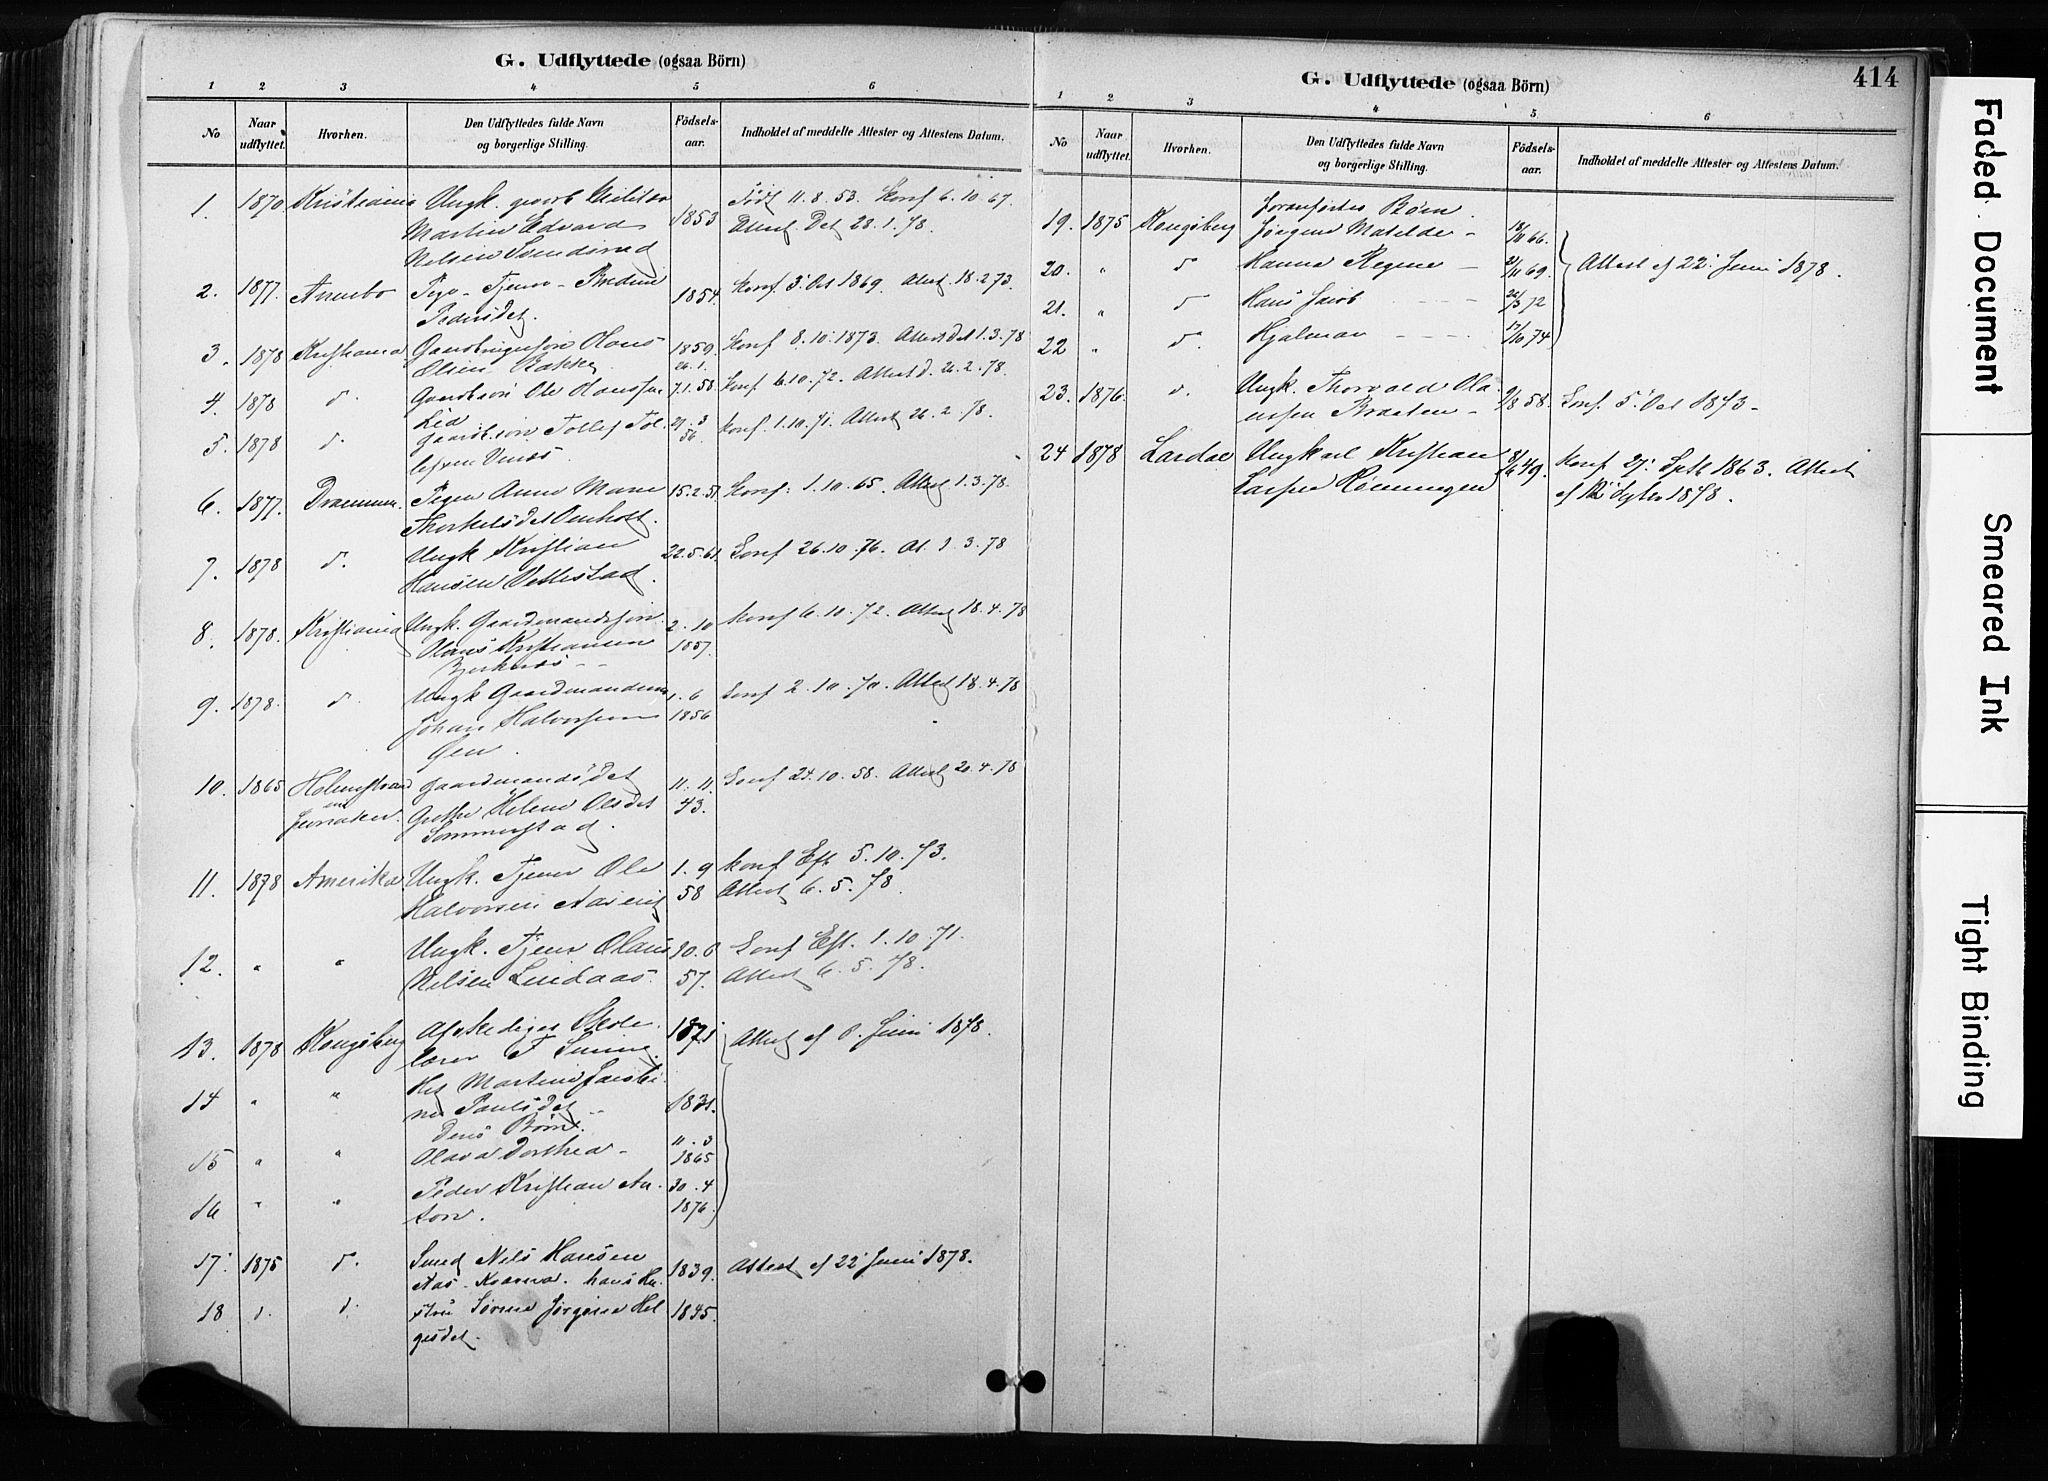 G. Udflyttede (ogsaa Börn)
1 2 3 4 5 6
No Naar udflyttet. Hvorhen. Den Udflyttedes fulde Navn og borgerlige Stilling. Födsels-aar. Indholdet af meddelte Attester og Attestens Datum.
1. 1870 Kristiania Ungk. 1853 Født 11.8.53. Konf 6.10.67.
Martin Edvard Attest Dat 28.1.78.
Nelsen
2. 1877. Pige - Tjener - 1854. Konf 3 Oct 1869. Attest 18.2.73.
Pedersdet.
3. 1878 Kristiania Olaus 1859. Konf 8.10.1873. Attest dat 1.3.78
Olsen Bakke 26.1.
4. 1878 d. Ole Hansen 7.1.58. Konf 6.10.72. Attest d. 26.2.78.
Lia
5. 1878 d. Tollef Tol- 29.3 56. Konf. 1.10.71. Attest 26.2.78.
lefsen
6. 1877. Drammen. Pigen Anne Marie 15.2.51. Konf: 1.10.65. Attest 1.3.78.
Thorkelsdet Omholt.
7. 1878 d. Ungk Kristian 22.5.61. Konf 26.10.76. At. 1.3.78
Hansen Vettestad.
8. 1878. Kristiania Ungk. Gaardmandssøn 2.10 Konf 6.10.72. Attest 18.4.78
Olaus Kristiansen 1857.
Bjerknes - -
9. 1878. d. Ungk Gaardmandssøn 1.6 Konf 2.10.70. Attest 18.4.78
Johan Halvorsen 1856
Øen.
10. 1865 Holmestrand Gaardmandsdet 11.11 Konf 24.10.58. Attest 20.4.78
Grethe Helene Olsdet 43.
Sommerstad.
11. 1878 Amerika Ungk. Tjener Ole 1.9 Konf Eft 5.10.73.
Halvorsen 58 Attest 6.5.78.
12. " " Ungk. Tjener Olaus Konf Eft. 1.10.71.
Nilsen Lindaas. 57. Attest 6.5.78.
13. 1878 Kongsberg Afskediget Skole- Attest af Juni 1878.
lærer T
14 " " Martine
Paulsdet 1831.
Deres Børn. 11.3
15 " " Olava Dorthea - 1865
16 " " Peder Kristian An- 30.4
ton. 1876.
17. 1875 d. Smed Nils Hansen
Aas. hans Hu- 1839. Attest af 22 Juni 1878.
18 d. d. stru Sørine Jørgine Hel- 1845
gesdet.
G. Udflyttede (ogsaa Börn)
414
1 2 3 4 5 6
No Naar udflyttet. Hvorhen. Den Udflyttedes fulde Navn og borgerlige Stilling. Födsels-aar. Indholdet af meddelte Attester og Attestens Datum.
Foranførtes Børn.
19. 1875 Kongsberg Jørgine Matilde - 18/11 66.
20. " d Hanna Regine - 21/11 69. Attest af 22 Juni 1878.
21. " d Hans Jacob - - - 22/3 72
22 " d. Hjalmar - - - 17/10 74
23. 1876. d. Ungk. Thorvald Ola- 9/8 58. Konf. 5 Oct 1873 -
ussen Braaten -
24 1878 Lardal Ungkarl Kristian 49. Konf 27. Sept 1863. Attest
Larsen Rønningen af 12 1878.
Faded Document
Smeared Ink
Tight Binding